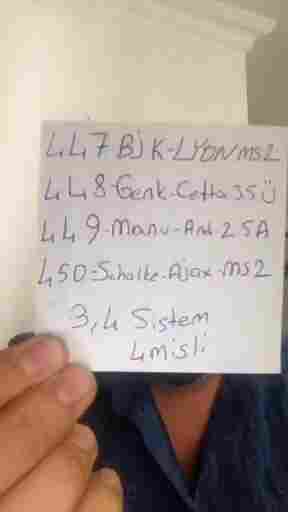 447 BJK-LYON ms2
448-Genk-Celta 3,5Ü
449-Manu-And-2,5A
450-Schalke-Ajax-ms2
3,4 Sistem
4misli